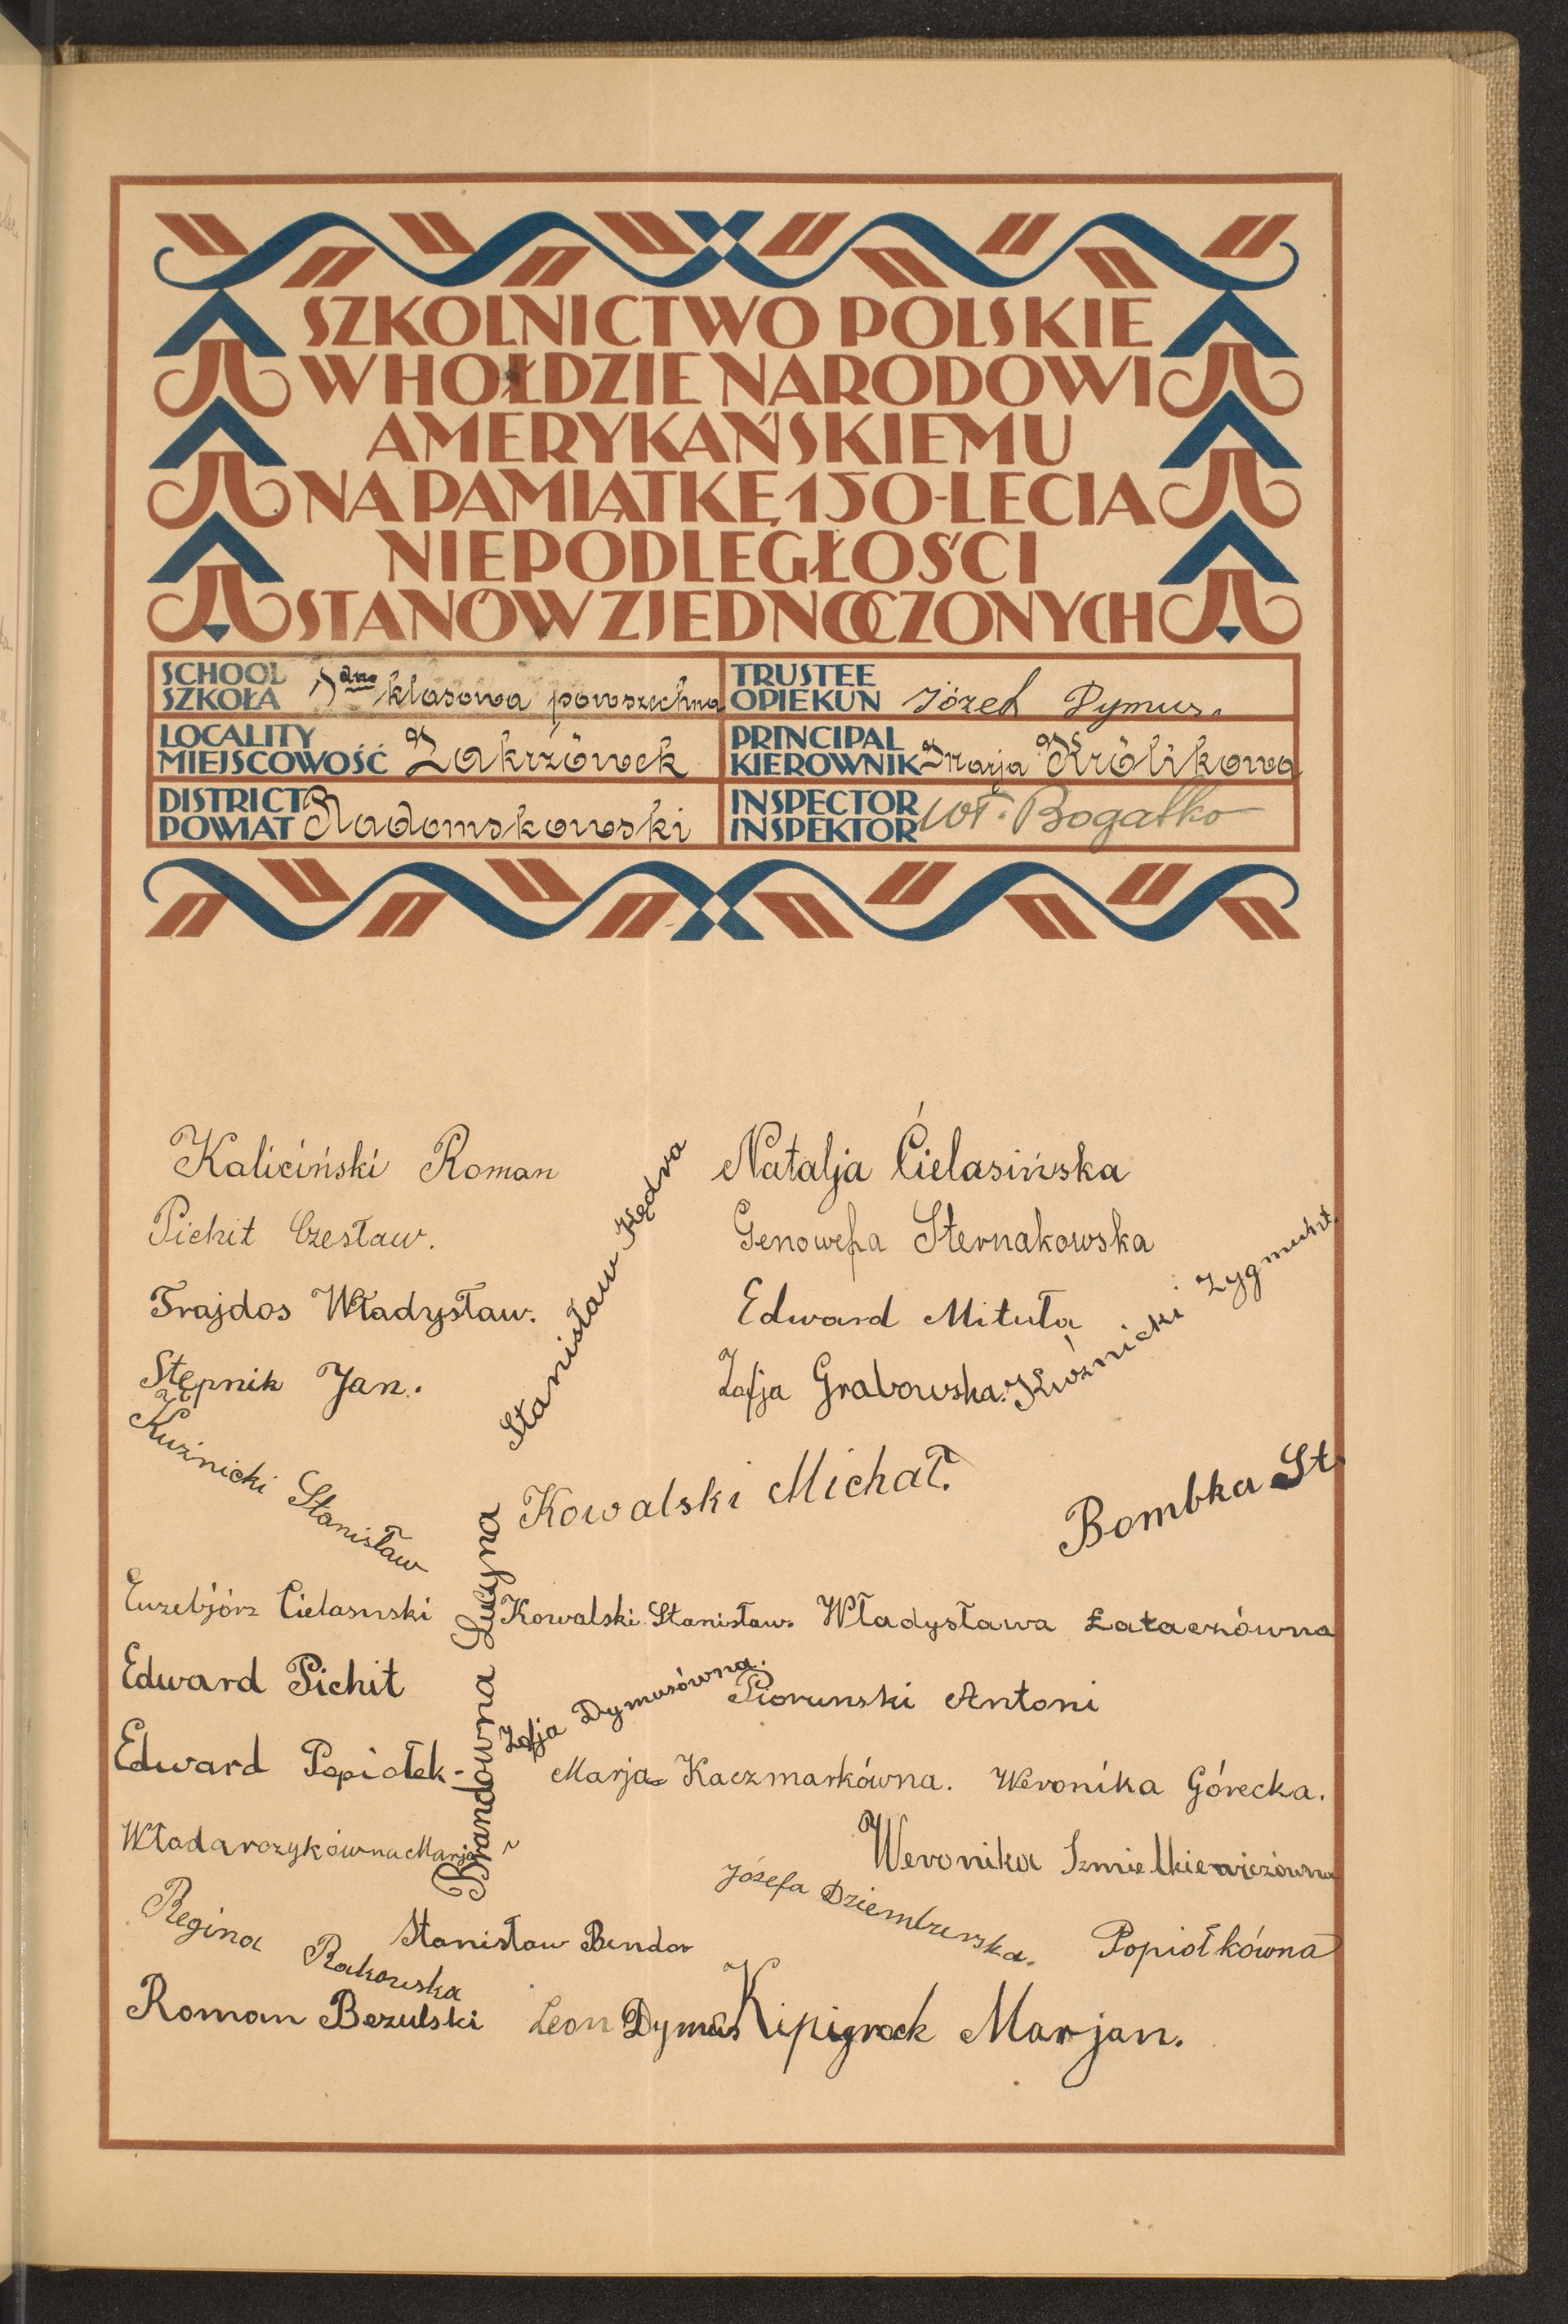 SZKOLNICTWO POLSKIE
W HOŁDZIE NARODOWI
AMERYKAŃSKIEMU
NA PAMIĄTKĘ 150-LECIA
NIEPODLEGŁOŚCI
STANÓW ZJEDNOCZONYCH
SCHOOL
SZKOŁA klasowa powszechna
TRUSTEE
OPIEKUN Józef Dymus.
LOCALITY
MIEJSCOWOŚĆ Zakrzówek
PRINCIPAL
KIEROWNIK Marja Królikowa
DISTRICT
POWIAT Radomskowski
INSPECTOR
INSPEKTOR Wł. Bogatko
Kaliciński Roman
Natalja Cielasińska
Pichit Czesław.
Stanisław Kędra
Genowefa Sternakowska
Trajdos Władysław.
Edward Mituła
Stępnik Jan.
Zofja Grabowska.
Kuźnicki Zygmunt.
Kuźnicki Stanisław
Kowalski Michał.
Bombka St.
Cielasinski
Brandówna Lucyna
Kowalski Stanisław.
Władysława Łataczówna
Edward Pichit
Zofja Dymusówna.
Piorunski Antoni
Edward Popiołek
Marja Kaczmarkówna.
Weronika Górecka.
Władarczykówna Marja
Weronika Szmielkiewiczówna
Józefa
Regina Rakowska
Stanisław Bendor
Popiołkówna
Roman Bezulski
Leon Dymus
Marjan.